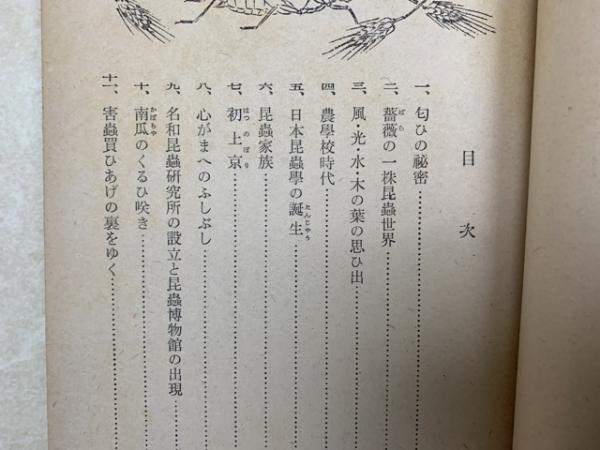 目次
一、匂ひの祕密
二、薔薇の一株昆蟲世界
三、風・光・水・木の葉の思ひ出
四、農學校時代
五、日本昆蟲學の誕生
六、昆蟲家族
七、初上京
八、心がまへのふしぶし
九、名和昆蟲研究所の設立と昆蟲博物館の出現
十、南瓜のくるひ咲き
十一、害蟲買ひあげの裏をゆく